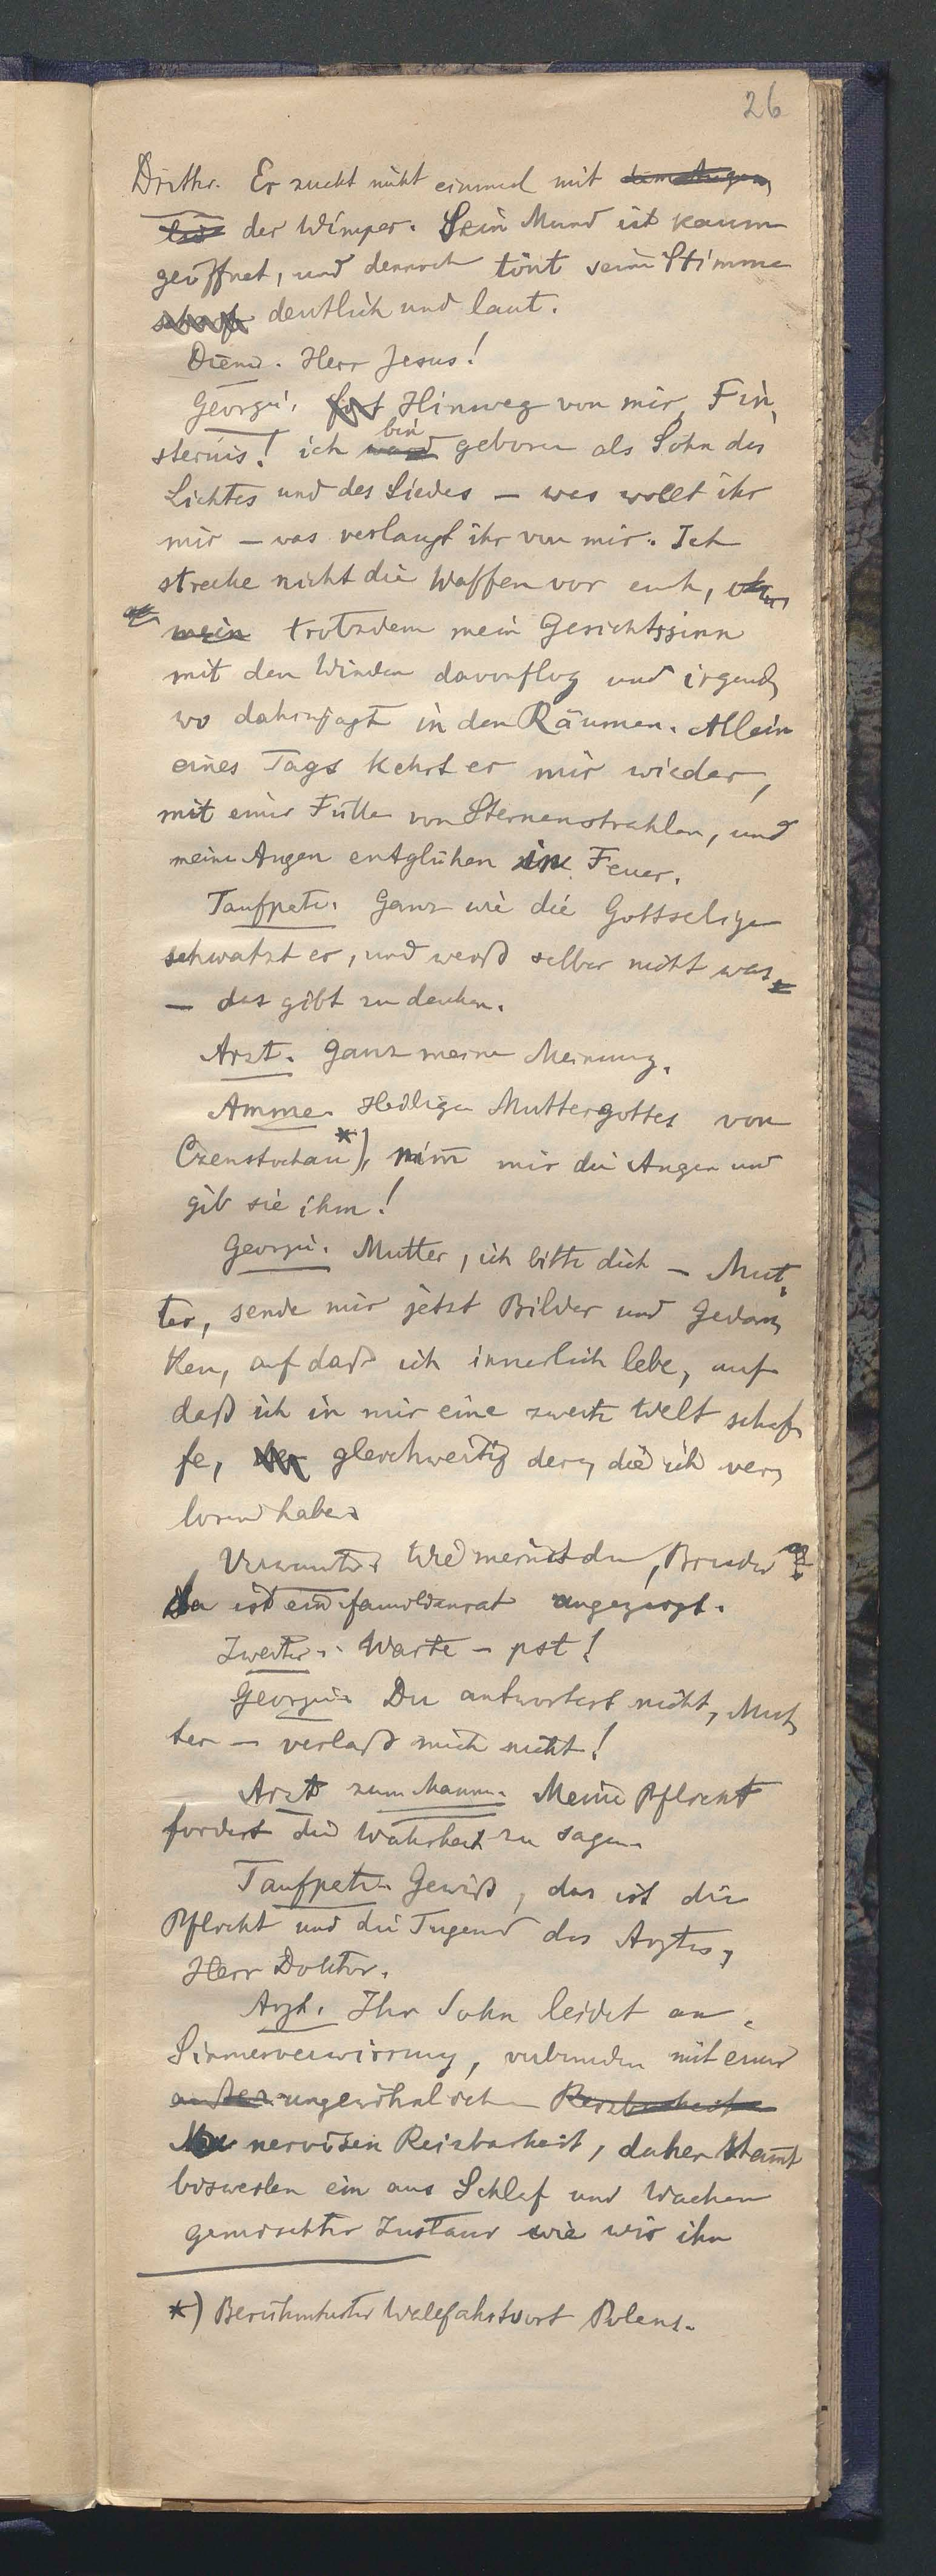 26
Dritter. Er zuckt nicht einmal mit dem Augen
lid der Wimper. Sein Mund ist kaum
geöffnet, und dennoch tönt seine Stimme
scharf deutlich und laut.
Diener. Herr Jesus!
Georgi. fort Hinweg von mir, Fin-
sternis! ich ward bin geboren als Sohn des
Lichtes und des Liedes – was wollt ihr
mir – was verlangt ihr von mir. Ich
strecke nicht die Waffen vor euch,
mein trotzdem mein Gesichtssinn
mit den Winden davonflog und irgend-
wo dahinjagt in den Räumen. Allein
eines Tags kehrt er mir wieder,
mit einer Fülle von Sternenstrahlen, und
meine Augen entglühen in Feuer.
Taufpate. Ganz wie die Gottselige
schwatzt er, und weiß selber nicht was
– das gibt zu denken.
Arzt. Ganz meine Meinung.
Amme. Heilige Muttergottes von
Czenstochau*), nim̄ mir die Augen und
gib sie ihm!
Georgi. Mutter, ich bitte dich – Mut-
ter, sende mir jetzt Bilder und Gedan-
ken, auf daß ich innerlich lebe, auf
daß ich in mir eine zweite Welt schaf-
fe, gleichwertig der, die ich ver-
loren habe.
Verwandter. Wie meinst du, Bruder?
Da ist ein Familienrat angezeigt.
Zweiter. Warte – pst!
Georgi. Du antwortest nicht, Mut-
ter – verlaß mich nicht!
Arzt zum Manne. Meine Pflicht
fordert die Wahrheit zu sagen.
Taufpate. Gewiß, das ist die
Pflicht und die Tugend des Arztes,
Herr Doktor.
Arzt. Ihr Sohn leidet an
Sinnenverwirrung, verbunden mit einer
außer ungewöhnlichen Reizbarkeit
nervösen Reizbarkeit, daher stam̄t
bisweilen ein aus Schlaf und Wachen
gemischter Zustand wie wir ihn
*) Berühmtester Wallfahrtsort Polens.